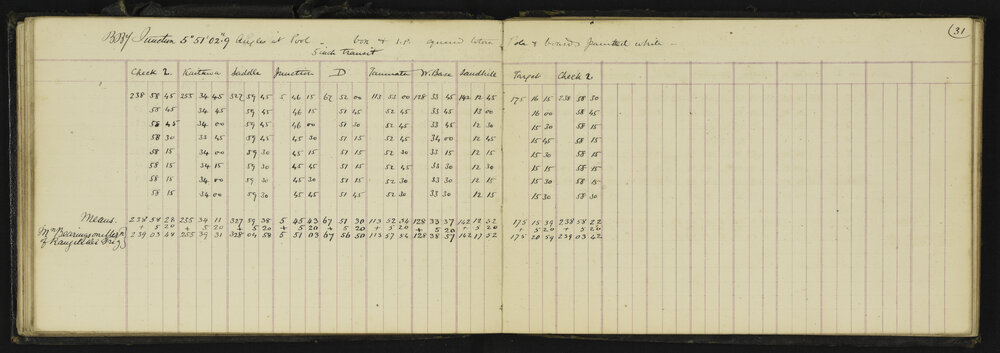 (31)
Junction 5° 51' 02".9 Angles at Pool. box & I.P. squared totara Pole & boards painted white
5 inch transit
Check 2. Kaitawa Saddle Junction D W. Base Sandhill Target Check 2
238 58 45 255 34 45 327 59 45 5 46 15 67 52 00 113 53 00 128 33 45 142 12 45 175 16 15 238 58 30
58 45 34 45 59 45 46 15 51 45 52 45 33 45 13 00 16 00 58 45
58 45 34 00 59 45 46 00 51 30 52 45 33 45 12 30 15 30 58 15
58 30 33 45 59 45 45 30 51 15 52 45 34 00 12 45 15 45 58 15
58 15 34 00 59 30 45 15 51 15 52 30 33 15 12 30 15 30 58 15
58 15 34 15 59 30 45 45 51 15 52 45 33 30 12 30 15 30 58 15
58 15 34 00 59 30 45 30 51 15 52 30 33 30 12 15 15 30 58 15
58 15 34 00 59 30 45 45 51 45 52 30 33 30 12 15 15 30 58 30
Means. 238 58 28 255 34 11 327 59 38 5 45 43 67 51 30 113 52 34 128 33 37 142 12 52 175 15 39 238 58 22
+ 5 20 + 5 20 + 5 20 + 5 20 + 5 20 + 5 20 + 5 20 + 5 20 + 5 20 + 5 20
Mn Bearings on Mern 239 03 48 255 39 31 328 04 58 5 51 03 67 56 50 113 57 54 128 38 57 142 17 52 175 20 59 239 03 42
of Rangitikei Trig